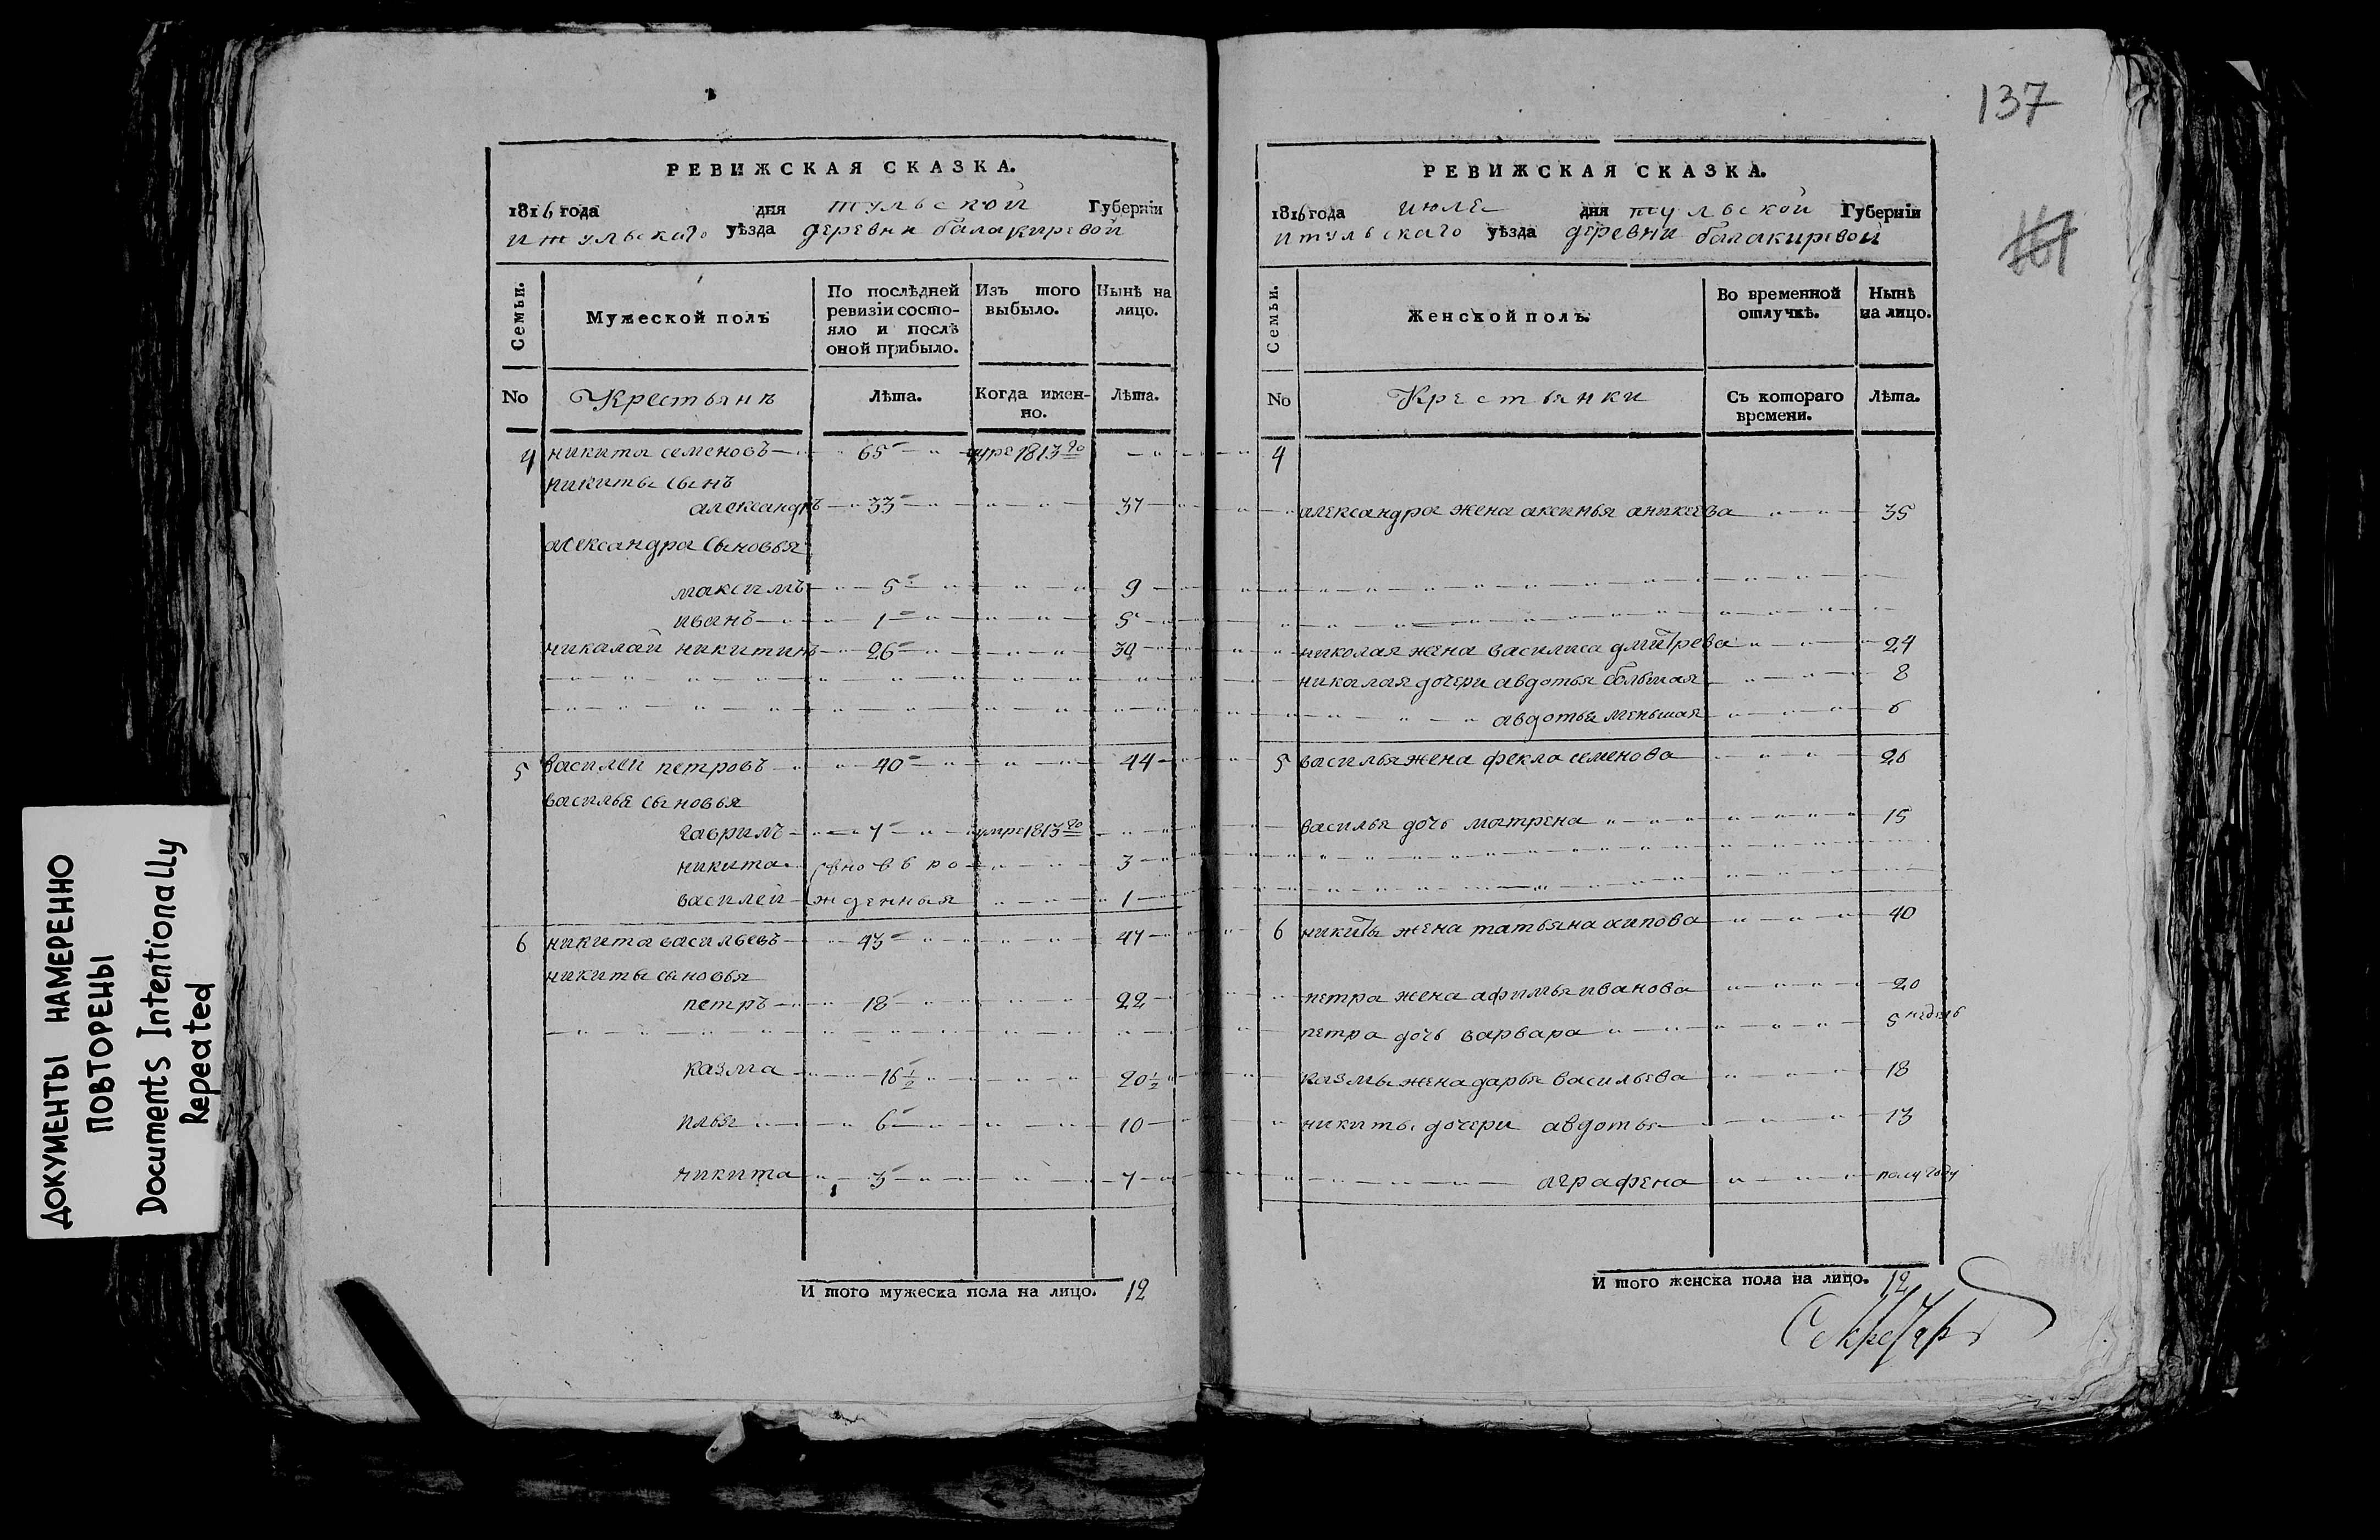 ДОКУМЕНТЫ НАМЕРЕННО
ПОВТОРЕНЫ
Documents Intentionally
Repeated
РЕВИЖСКАЯ СКАЗКА.
1816 года дня тульской Губерніи
итульскаго уѣзда деревни балакиревой
Семьи.
Мужеской полъ
По послѣдней ревизіи состо-
яло и послѣ
оной прибыло.
Изъ того
выбыло.
Нынѣ на
лицо.
No Крестьянъ Лѣта. Когда имен-
но. Лѣта.
4 никита семеновъ 65 умре 1813го
никиты сынъ
александръ 33 37
александра сыновья
максимъ 5 9
иванъ 1 5
никалай никитинъ 26 30
5 василей петровъ 40 44
василья сыновья
гаврилъ 7 умре 1813го
никита вновь ро 3
василей жденныя 1
6 никита васильевъ 43 47
никиты сыновья
петръ 18 22
казма 16½ 20½
илья 6 10
никита 3 7
И того мужеска пола на лицо. 12
137
РЕВИЖСКАЯ СКАЗКА.
1816 года июля дня тульской Губерніи
итульскаго уѣзда деревни балакиревой
Семьи.
Женской полъ.
Во временной
отлучкѣ.
Нынѣ
на лицо.
No Крестьянки Съ котораго
времени. Лѣта.
4
александра жена аксинья аникеева 35
николая жена василиса дмитрева 24
никалая дочери авдотья большая 8
авдотья меньшая 6
5 василья жена фекла семенова 26
василья дочь матрена 15
6 никиты жена татьяна аипова 40
петра жена афимья иванова 20
петра дочь варвара 5 недель
казмы жена дарья васильева 18
никиты дочери авдотья 13
аграфена полугоду
И того женска пола на лицо. 12
Секретарь